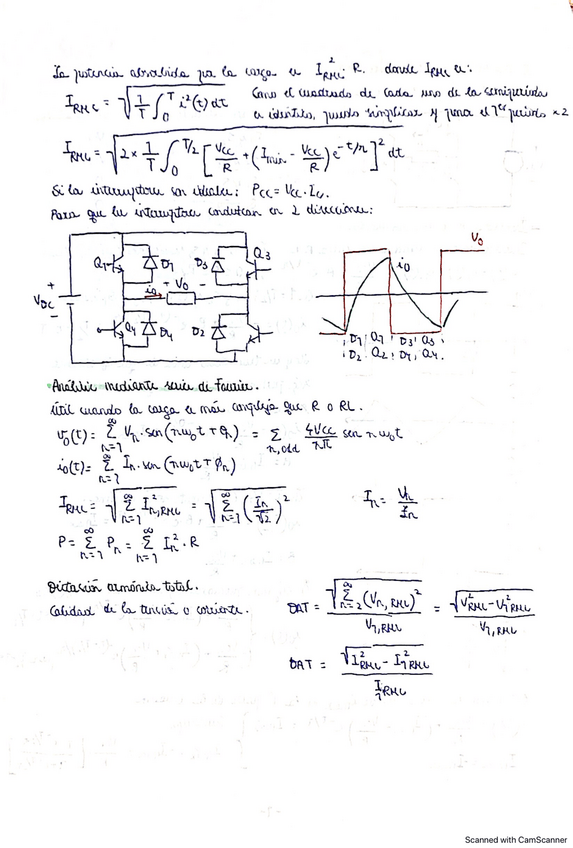 La potencia absorbida por la carga es I²RMS · R. donde IRMS es:
IRMS = √(1/T ∫₀ᵀ i²(t) dt) Como el cuadrado de cada uno de los semiperiodos
es idéntico, puedo simplificar y poner el 1er periodo × 2
IRMS = √(2 × 1/T ∫₀^(T/2) [Vcc/R + (Imin - Vcc/R) e^(-t/τ)]² dt)
Si los interruptores son ideales: Pcc = Vcc · Is.
Para que los interruptores conduzcan en 2 direcciones:
Q1 D1 D3 Q3
VDC + -
io + Vo -
Q4 D4 D2
Vo
io
D1 Q1 D3 Q3
D2 Q2 D4 Q4
Análisis mediante serie de Fourier.
Útil cuando la carga es más compleja que R o RL.
vo(t) = Σ(n=1→∞) Vn · sen(nωot + θn) = Σ(n,odd) 4Vcc/nπ sen nωot
io(t) = Σ(n=1→∞) In · sen(nωot + Φn)
IRMS = √(Σ(n=1→∞) I²n,RMS) = √(Σ(n=1→∞) (In/√2)²) In = Vn/Zn
P = Σ(n=1→∞) Pn = Σ(n=1→∞) In² · R
Distorsión armónica total.
Calidad de la tensión o corriente. DAT = √(Σ(n=2→∞) (Vn,RMS)²) / V1,RMS = √(V²RMS - V²1RMS) / V1,RMS
DAT = √(I²RMS - I²1RMS) / I1RMS
-1-
Scanned with CamScanner